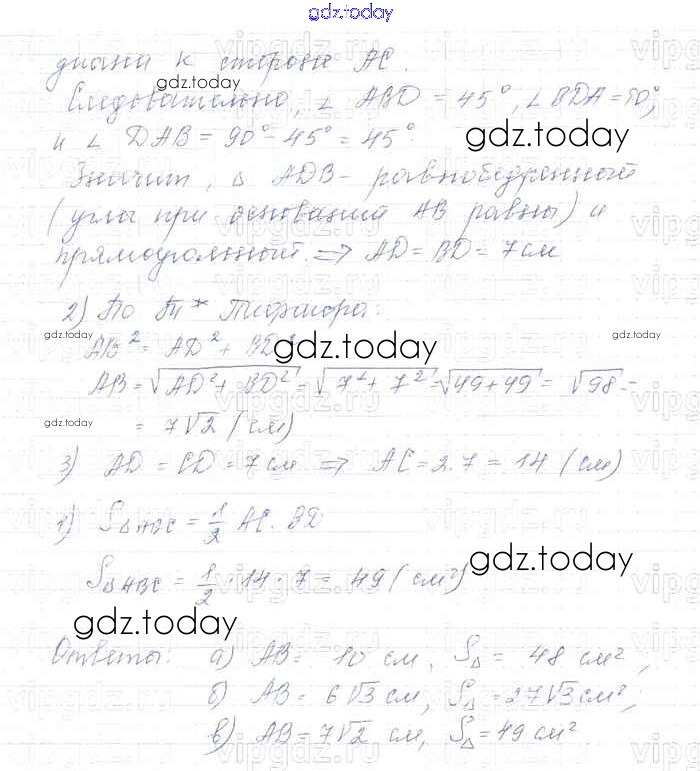 gdz.today
дианы к стороне AC.
gdz.today
Следовательно, ∠ ABD = 45°, ∠ BDA = 90°,
и ∠ DAB = 90° - 45° = 45°.
gdz.today
Значит, Δ ADB - равнобедренный
(углы при оснований AB равны) и
прямоугольный. => AD = BD = 7 см
2) По Пифагора:
gdz.today
gdz.today
AB² = AD² + BD²
gdz.today
AB = √AD² + BD² = √7² + 7² = √49 + 49 = √98 =
gdz.today
= 7√2 (см)
3) AD = CD = 7 см => AC = 2·7 = 14 (см)
1) S△ABC = 1/2 AC · BD
gdz.today
S△ABC = 1/2 · 14 · 7 = 49 (см²)
gdz.today
Ответы: а) AB = 10 см, S△ = 48 см²,
б) AB = 6√3 см, S△ = 27√3 см²;
в) AB = 7√2 см, S△ = 49 см²